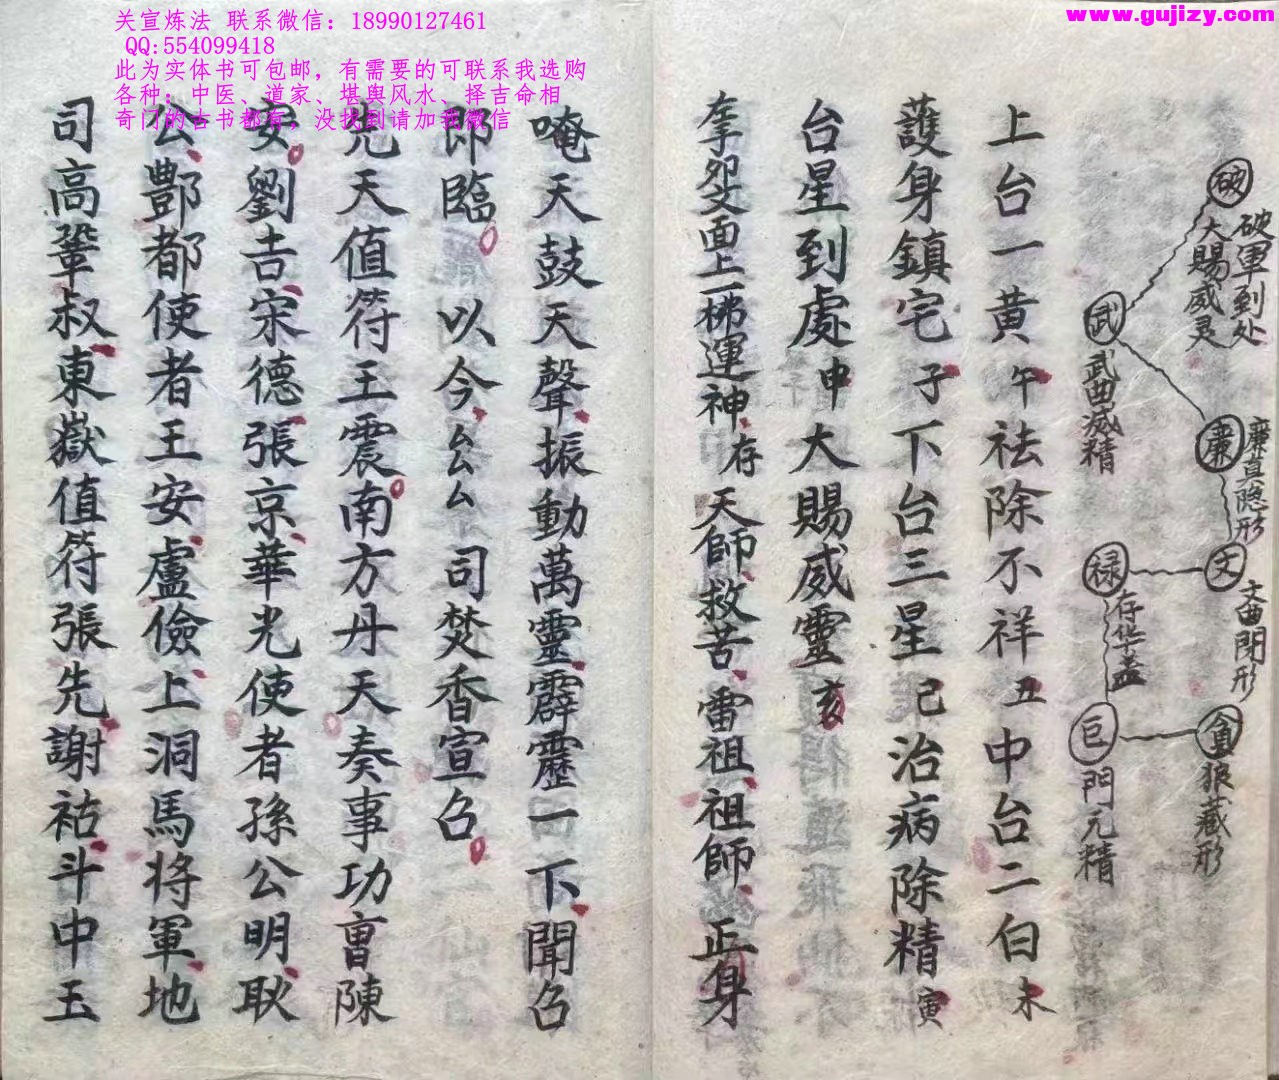 关宣炼法 联系微信：18990127461
QQ:554099418
此为实体书可包邮，有需要的可联系我选购
各种：中医、道家、堪舆风水、择吉命相
奇门的古书都有，没找到请加我微信
www.gujizy.com
破
破軍到处
大賜威灵
武
武曲威精
廉
廉真隐形
文
文曲閉形
禄
存华盖
巨
門元精
貪
狼藏形
上台一黄午祛除不祥丑中台二白未
護身鎮宅子下台三星巳治病除精寅
台星到處申大賜威靈亥
面上一拂運神存天師救苦雷祖祖師正身
唵天鼓天聲振動萬靈霹靂一下聞召
即臨以今厶厶司焚香宣召
先天值符王震南方丹天奏事功曹陳
安劉吉宋德張京華光使者孫公明耿
公酆都使者王安盧儉上洞馬将軍地
司高鞏叔東嶽值符張先謝祐斗中玉